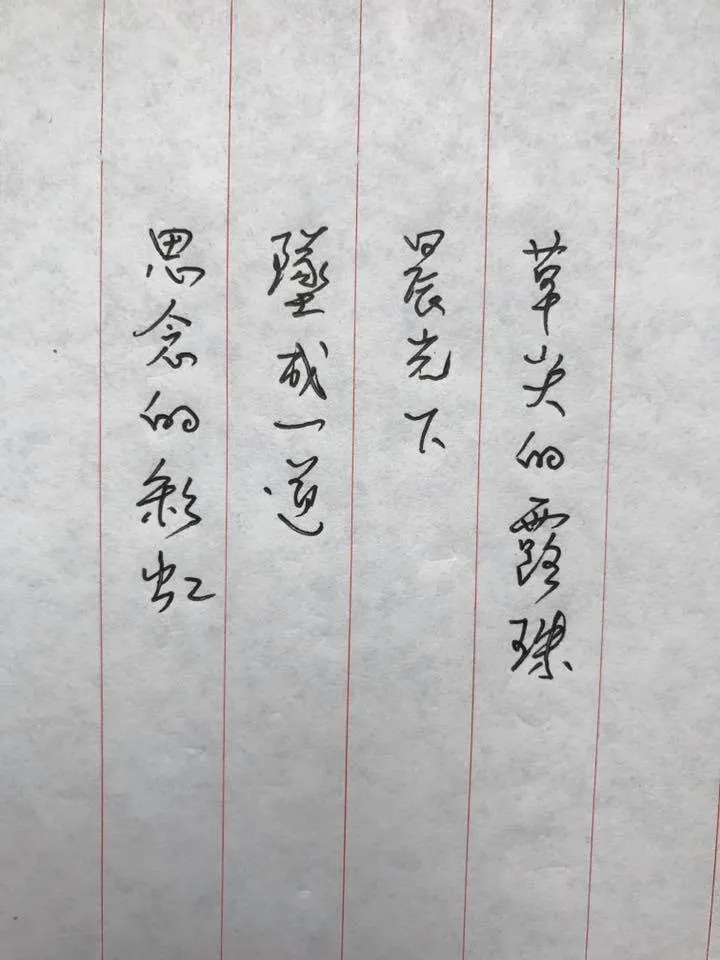 草尖的露珠
晨光下
墜成一道
思念的彩虹